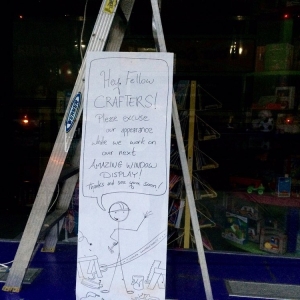 Hey Fellow
CRAFTERS!
Please excuse
our appearance
while we work on
our next
AMAZING WINDOW
DISPLAY!
Thanks and see you soon!